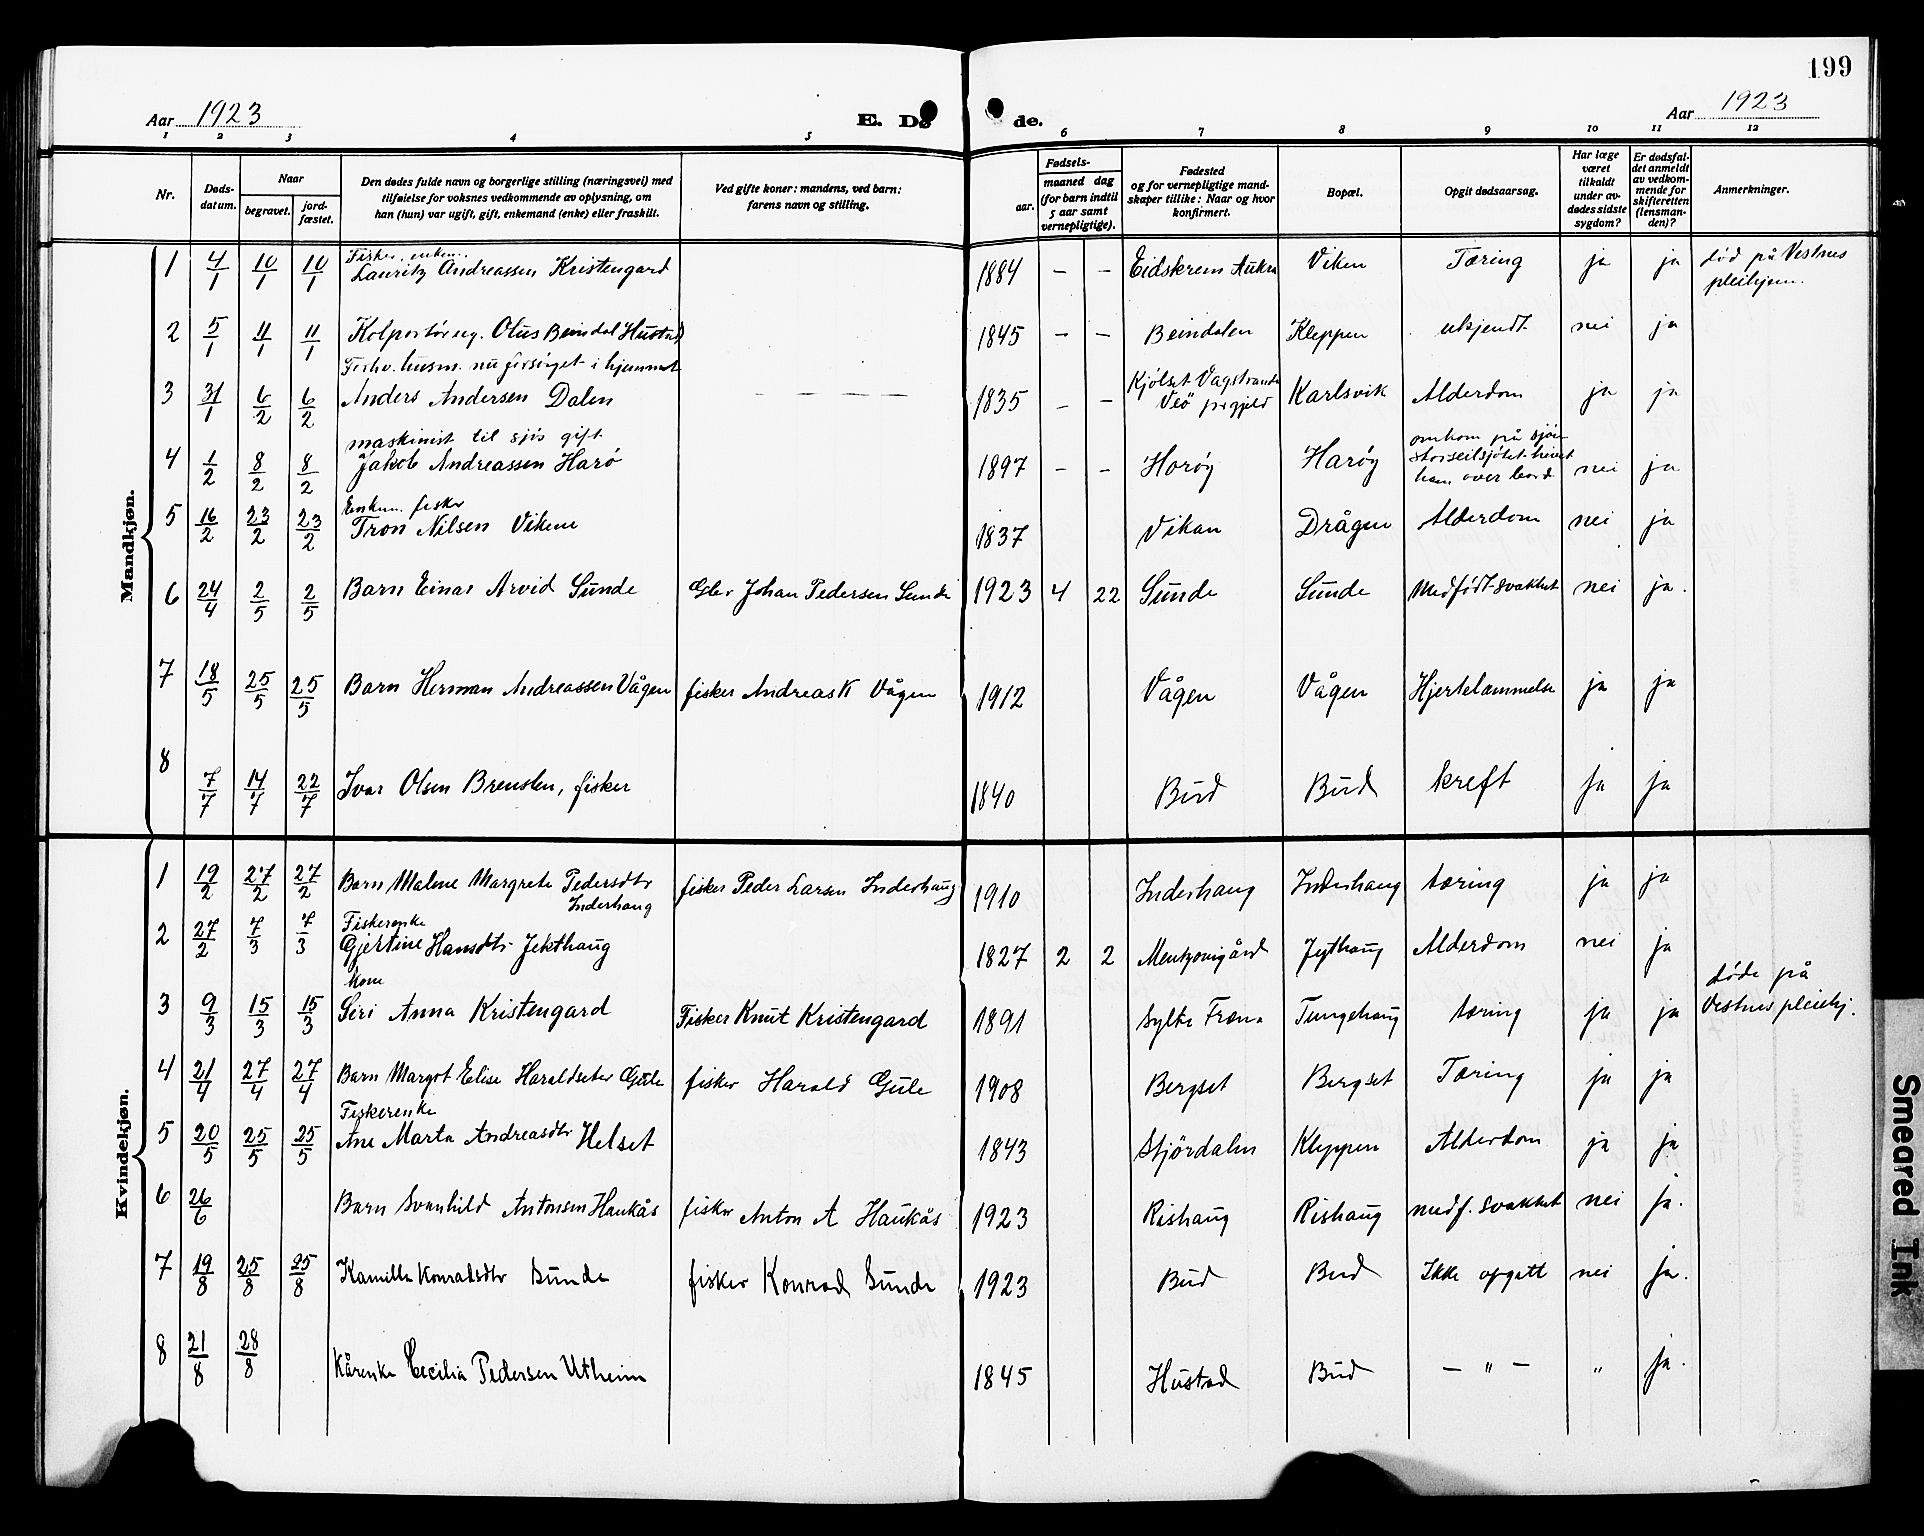 199
Aar 1923
E. Dø de.
Aar 1923
1 2 3 4 5 6 7 8 9 10 11 12
Nr.
Døds-
datum.
Naar
begravet.
jord-
fæstet.
Den dødes fulde navn og borgerlige stilling (næringsvei) med
tilføielse for voksnes vedkommende av oplysning, om
han (hun) var ugift, gift, enkemand (enke) eller fraskilt.
Ved gifte koner: mandens, ved barn:
farens navn og stilling.
Fødsels-
aar.
maaned dag
(for barn indtil
5 aar samt
vernepligtige).
Fødested
og for vernepligtige mand-
skaper tillike: Naar og hvor
konfirmert.
Bopæl.
Opgit dødsaarsag.
Har læge
været
tilkaldt
under av-
dødes sidste
sygdom?
Er dødsfal-
det anmeldt
av vedkom-
mende for
skifteretten
(lensman-
den)?
Anmerkninger.
Mandkjøn.
Fisker, enkem.
1 4/1 10/1 10/1 Lauritz Andreassen Kristengard 1884 – – Eidskrem Aukra Viken Tæring ja ja død på Vestnes
pleihjem.
2 5/1 11/1 11/1 Kolportør ug. Olus Beindal Hustad 1845 – – Beindalen Kleppen ukjendt nei ja
Forhv. husm. nu forsørget i hjemmet
3 31/1 6/2 6/2 Anders Andersen Dalen – – – – 1835 – – Kjølset Vagstranda
Veö prgjeld Karlsvik Alderdom ja ja
maskinist til sjös gift
4 1/2 8/2 8/2 Jakob Andreassen Harö 1897 – – Harøy Harøy omkom på sjøen
storseilsjötet hivet
ham over bord nei ja
Enkem. fisker
5 16/2 23/2 23/2 Tron Nilsen Vikene 1837 Vikan Drågen Alderdom nei ja
6 24/4 2/5 2/5 Barn Einar Arvid Sunde Gbr Johan Pedersen Sunde 1923 4 22 Sunde Sunde Medfödt svakhet nei ja.
7 18/5 25/5 25/5 Barn Herman Andreassen Vågen fisker Andreas K Vågen 1912 Vågen Vågen Hjertelammelse ja ja
8 7/7 14/7 22/7 Ivar Olsen Brensten, fisker 1840 Bud Bud kreft ja ja
Kvindekjøn.
1 19/2 27/2 27/2 Barn Malene Margrete Pedersdtr
Inderhaug fisker Peder Larsen Inderhaug 1910 Inderhaug Inderhaug tæring ja ja
Fiskerenke
2 27/2 7/3 7/3 Gjertine Hansdtr Jekthaug 1827 2 2 Jythaug Alderdom nei ja
kone
3 9/3 15/3 15/3 Siri Anna Kristengard Fisker Knut Kristengard 1891 Sylte Fræna Tungehaug tæring ja ja döde på
Vestnes pleiehj.
4 21/4 27/4 27/4 Barn Margot Elise Haraldseter Gule fisker Harald Gule 1908 Bergset Bergset Tæring ja ja
Fiskerenke
5 20/5 25/5 25/5 Ane Marta Andreasdtr Helset 1843 Stjördalen Kleppen Alderdom ja ja
6 26/6 Barn Svanhild Antonsen Haukås fisker Anton A Haukås 1923 Rishaug Rishaug medf. svakhet nei ja.
7 19/8 25/8 25/8 Kamilla Konradsdtr Sunde fisker Konrad Sunde 1923 Bud Bud Ikke opgitt nei ja.
8 21/8 28/8 Kårenke Cecilia Pedersen Utheim 1845 Hustad Bud – " – " ja.
Smeared Ink